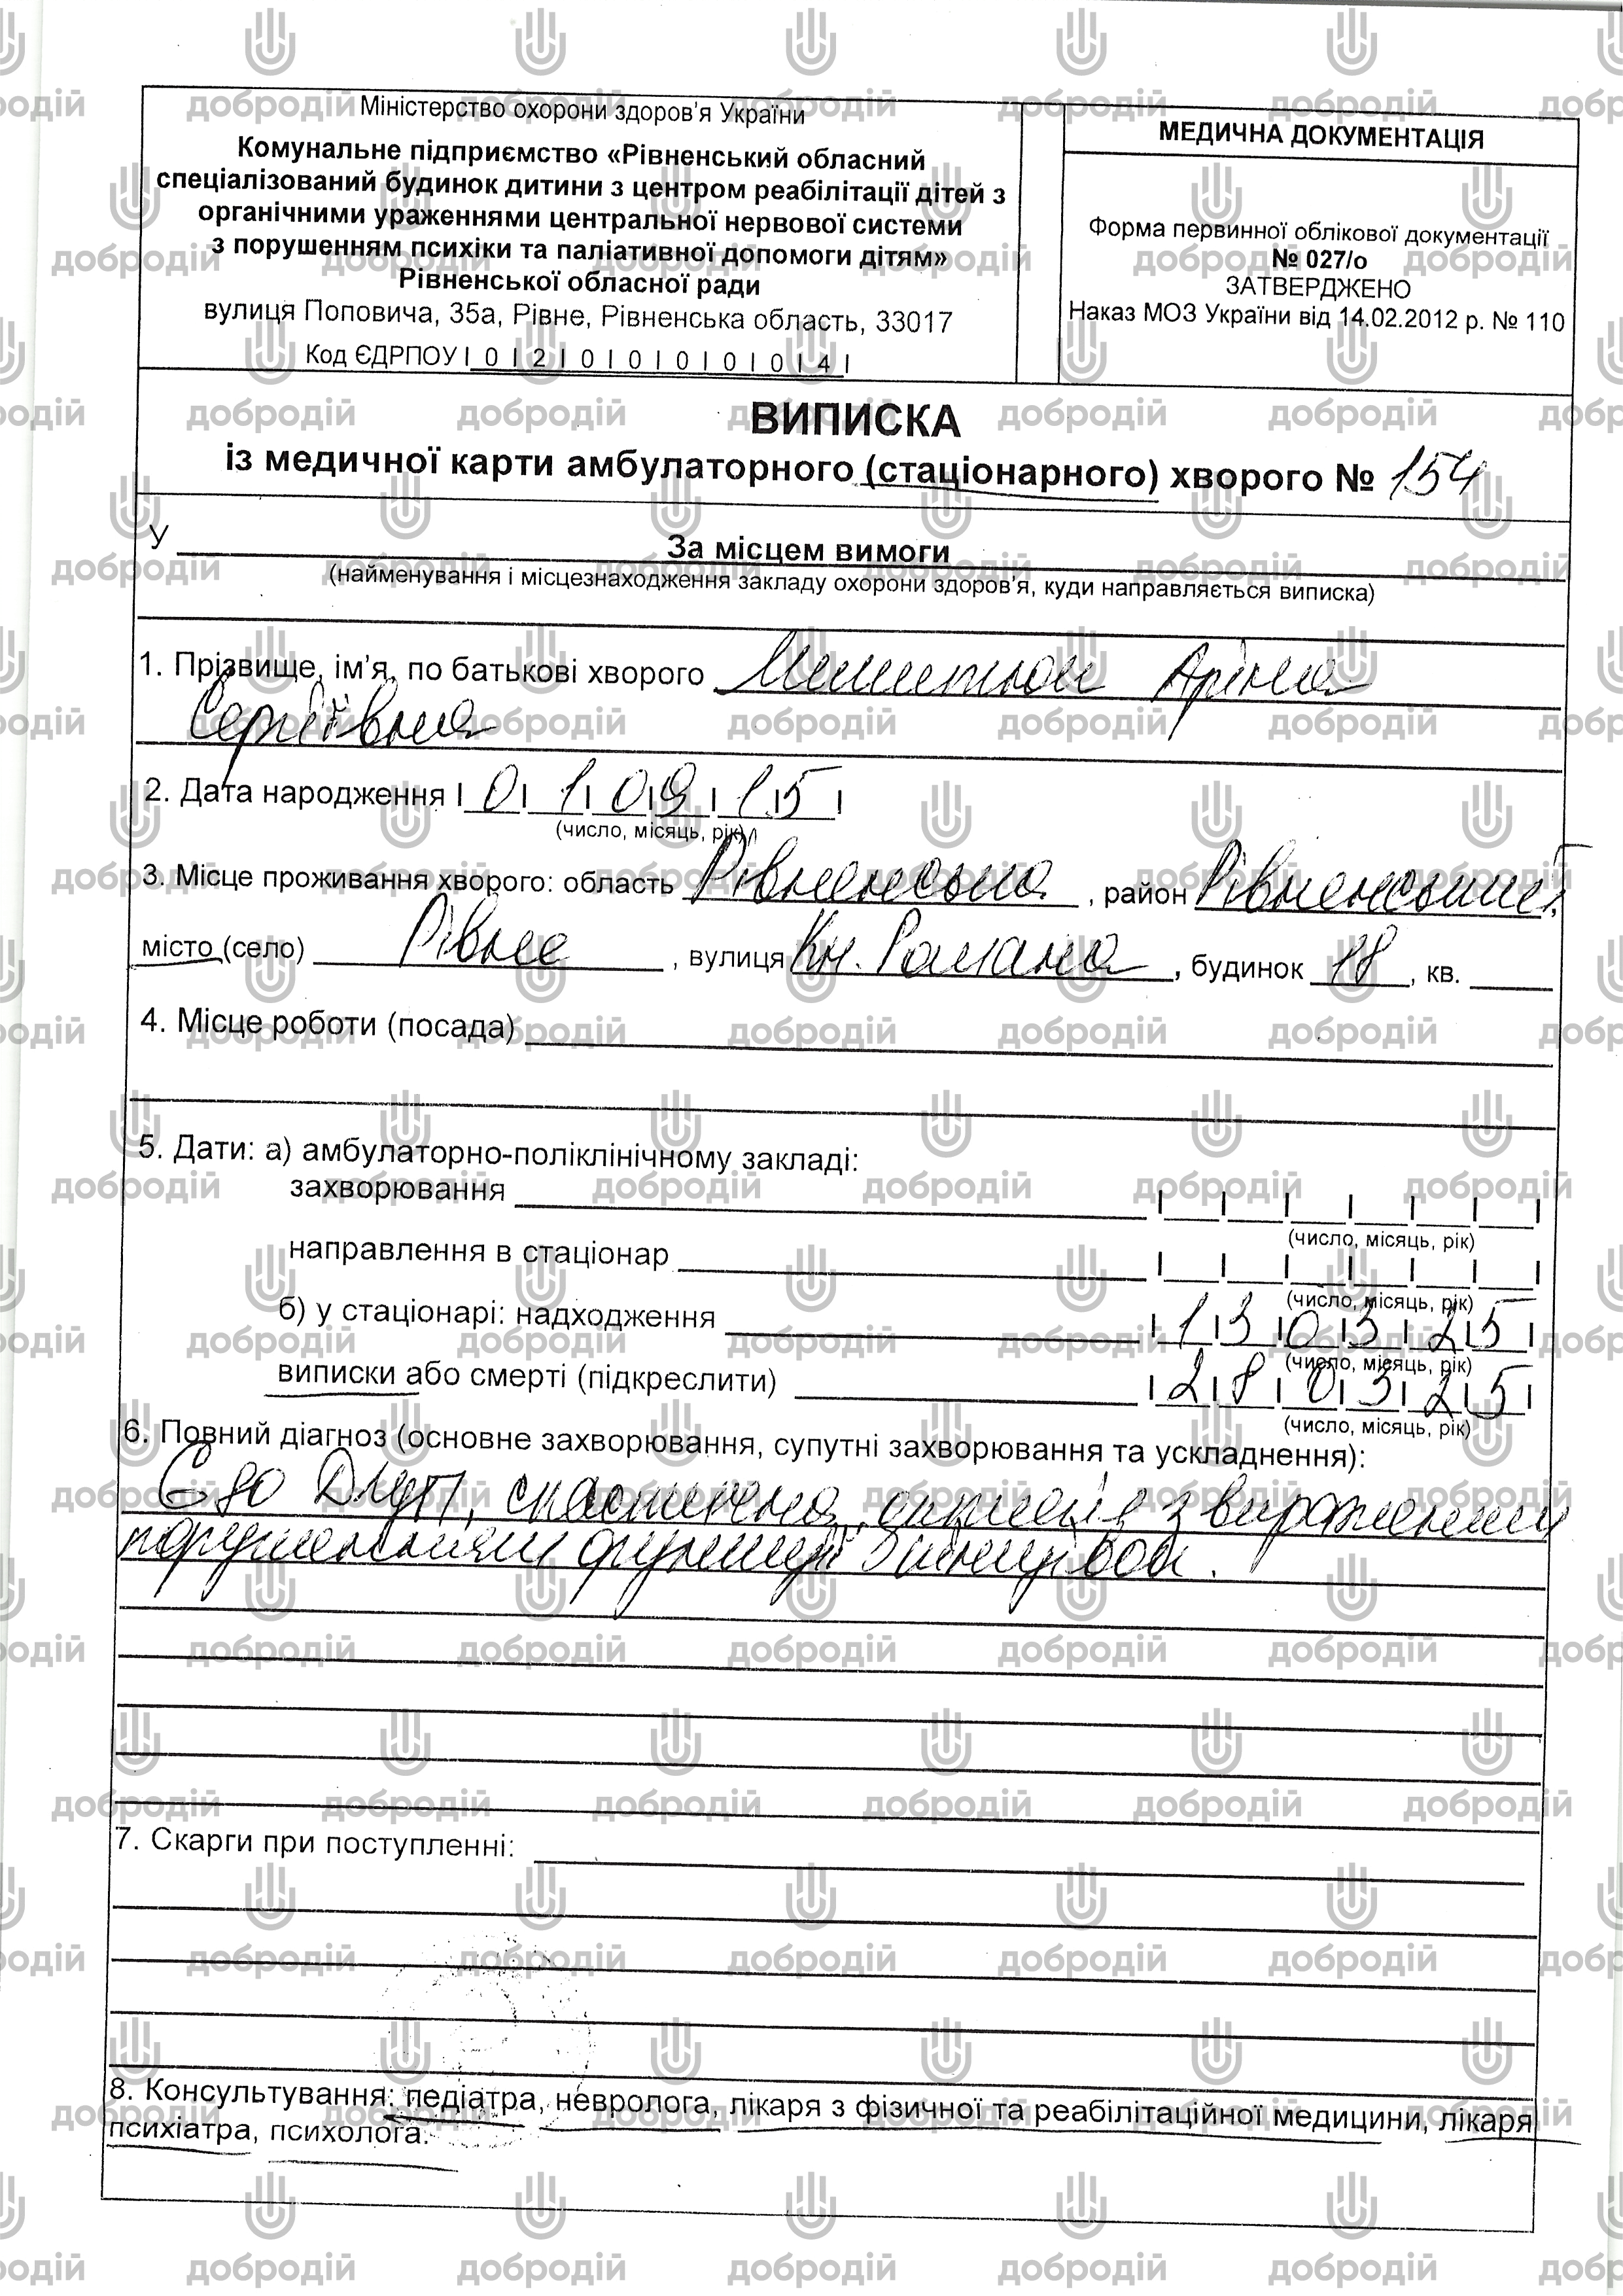 Міністерство охорони здоров'я України
Комунальне підприємство «Рівненський обласний
спеціалізований будинок дитини з центром реабілітації дітей з
органічними ураженнями центральної нервової системи
з порушенням психіки та паліативної допомоги дітям»
Рівненської обласної ради
вулиця Поповича, 35а, Рівне, Рівненська область, 33017
Код ЄДРПОУ | 0 | 2 | 0 | 0 | 0 | 0 | 0 | 4 |
МЕДИЧНА ДОКУМЕНТАЦІЯ
Форма первинної облікової документації
№ 027/о
ЗАТВЕРДЖЕНО
Наказ МОЗ України від 14.02.2012 р. № 110
ВИПИСКА
із медичної карти амбулаторного (стаціонарного) хворого № 154
У За місцем вимоги
(найменування і місцезнаходження закладу охорони здоров'я, куди направляється виписка)
1. Прізвище, ім'я, по батькові хворого Аріна
Сергіївна
2. Дата народження 0 1 0 9 1 5
(число, місяць, рік)
3. Місце проживання хворого: область Рівненська, район Рівненський,
місто (село) Рівне, вулиця Кн. Романа, будинок 18, кв.
4. Місце роботи (посада)
5. Дати: а) амбулаторно-поліклінічному закладі:
захворювання
(число, місяць, рік)
направлення в стаціонар
(число, місяць, рік)
б) у стаціонарі: надходження 1 3 0 3 2 5
(число, місяць, рік)
виписки або смерті (підкреслити) 2 8 0 3 2 5
(число, місяць, рік)
6. Повний діагноз (основне захворювання, супутні захворювання та ускладнення):
спастична з вираженим
порушенням функції кінцівок.
7. Скарги при поступленні:
8. Консультування: педіатра, невролога, лікаря з фізичної та реабілітаційної медицини, лікаря
психіатра, психолога.
добродій